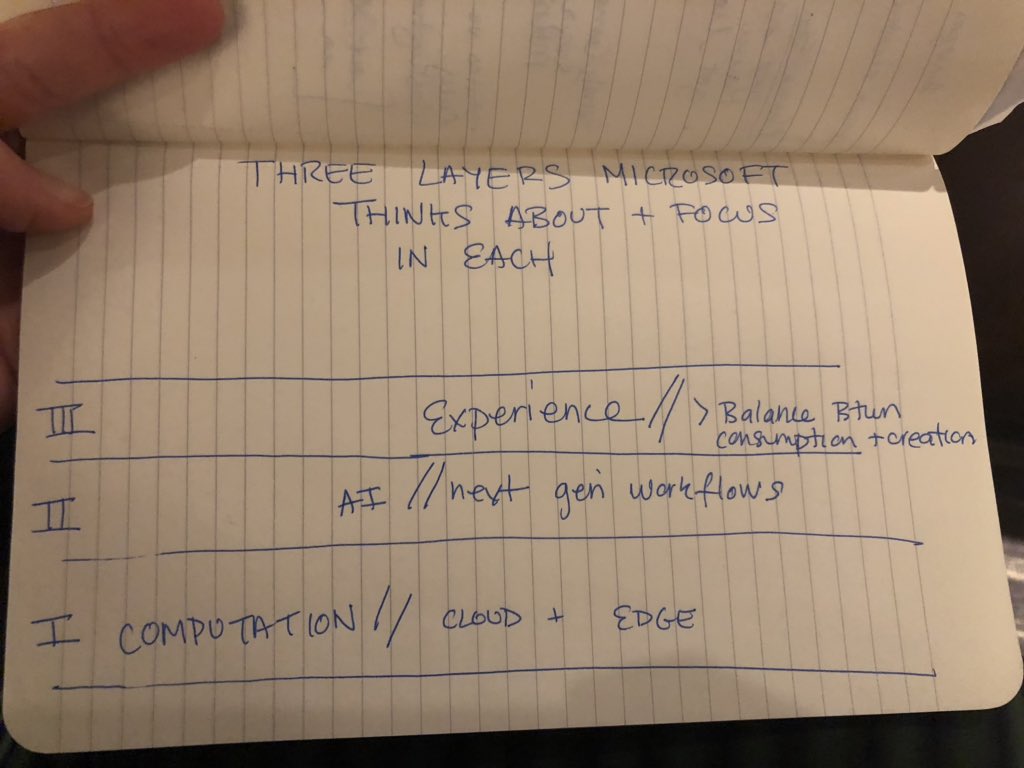 THREE LAYERS MICROSOFT
THINKS ABOUT + FOCUS
IN EACH
III Experience // > Balance Btwn
consumption + creation
II AI // next gen workflows
I COMPUTATION // CLOUD + EDGE